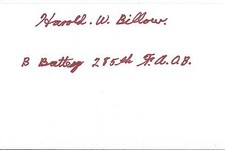 Harold. W. Billow.
B Battery 285th F.A.O.B.